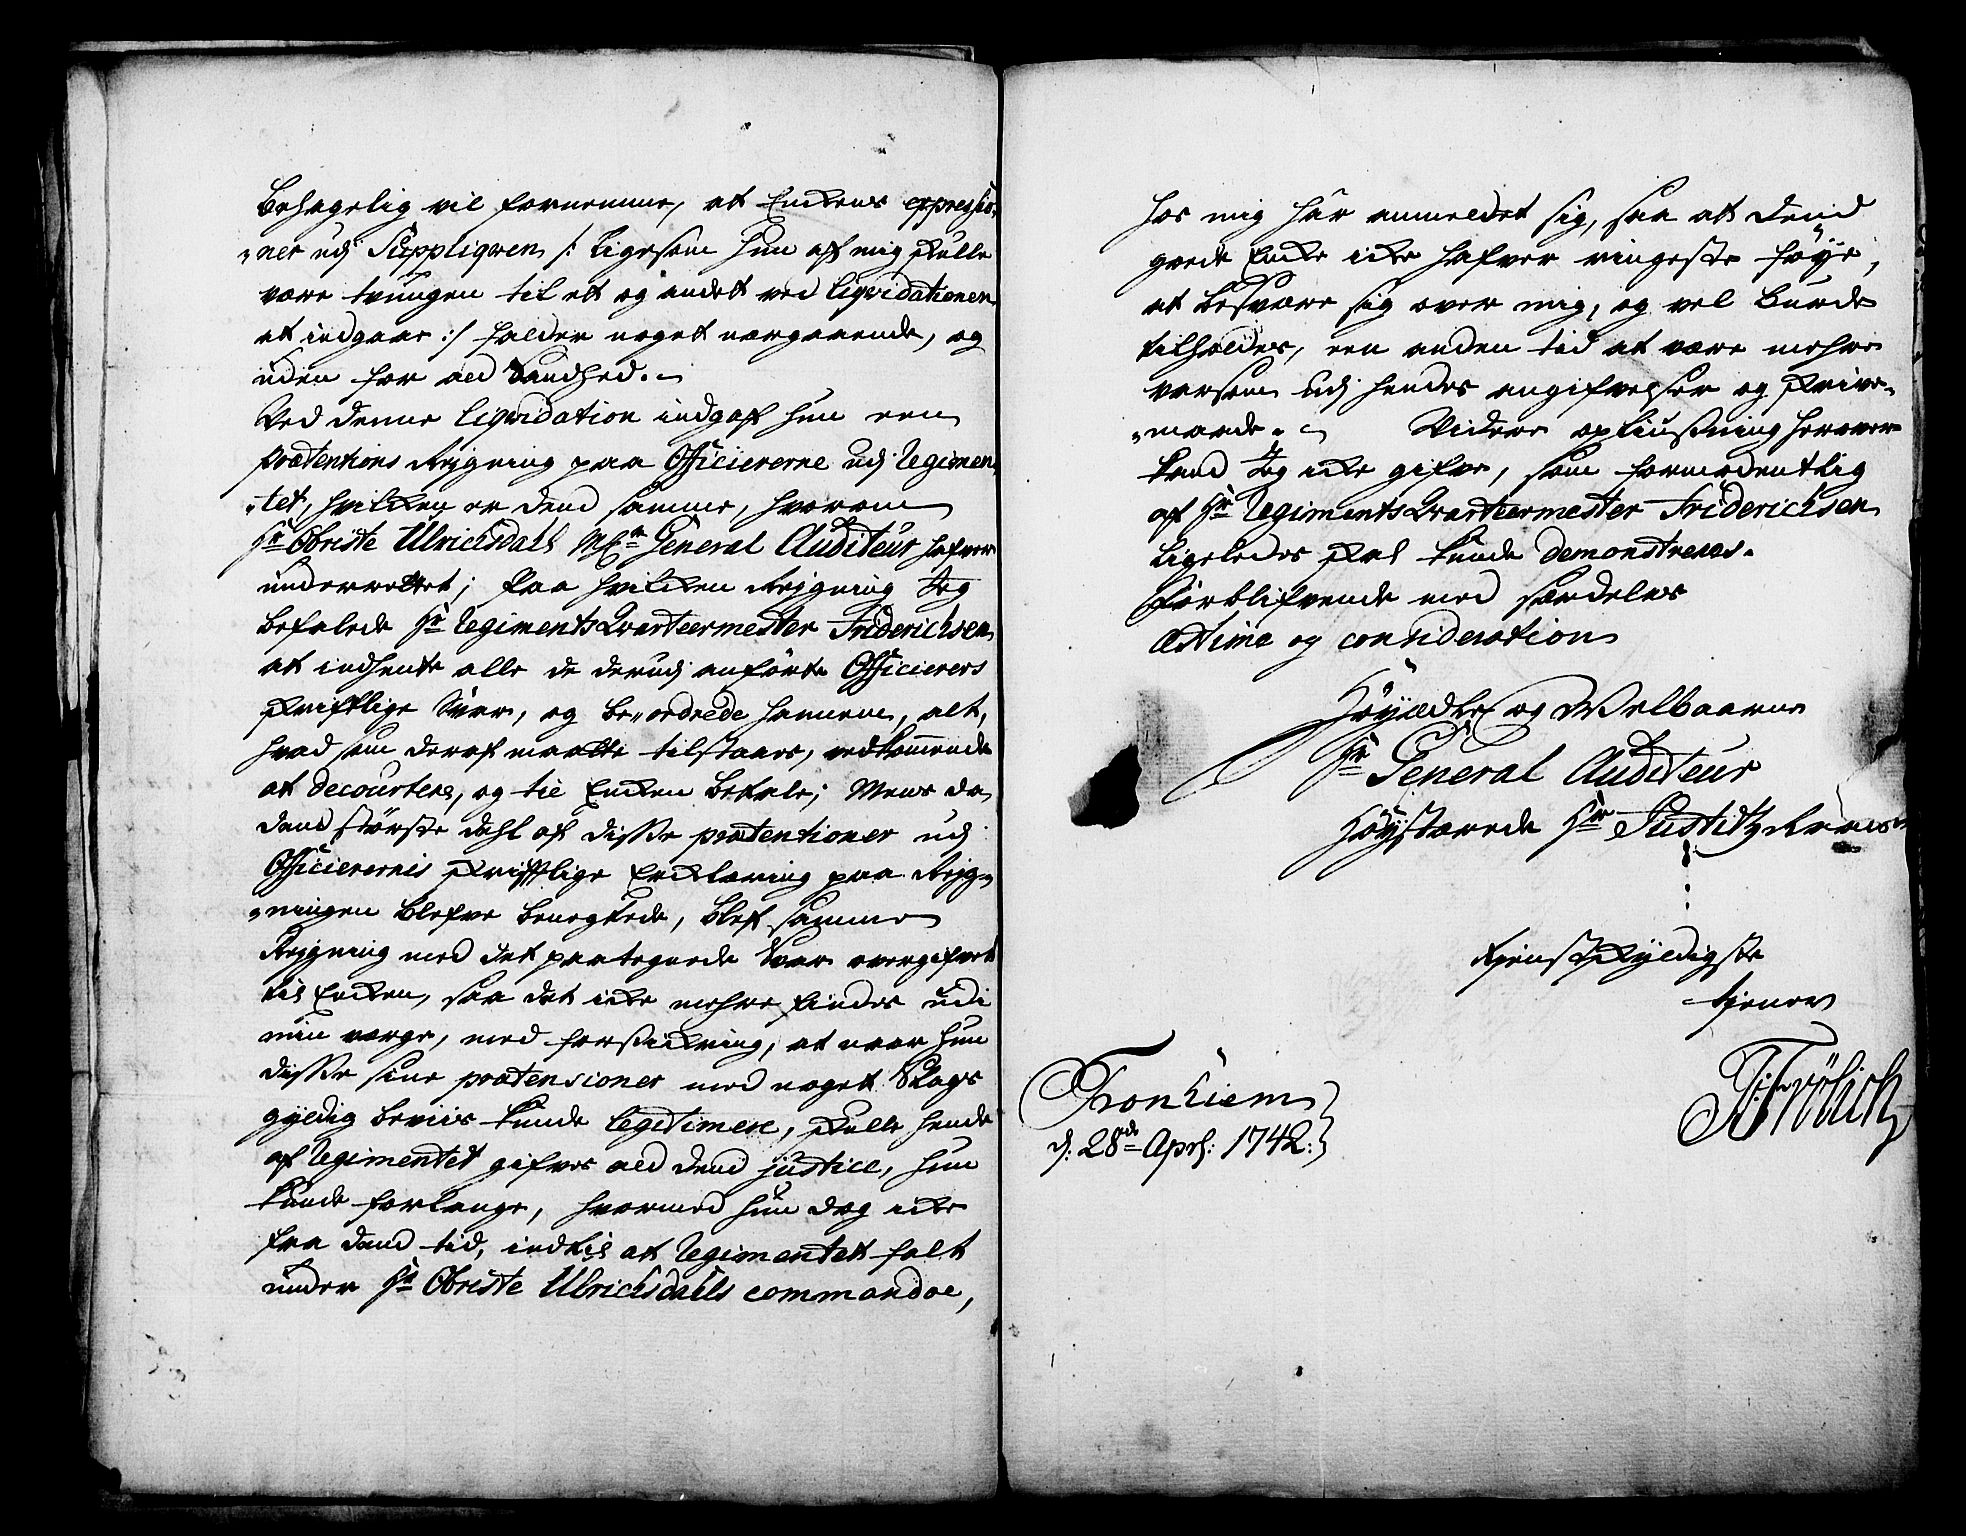 behagelig vil fornemme, at Enckens expressio„
„ner udj Suppliqven /: ligesom hun af mig skulle
være tvungen til et og andet ved liqvidationen
at indgaae :/ falder noget nærgaaende, og
uden for ald Sandhed.
Ved denne liqvidation indgaf hun een
prætentions Reigning paa Officiererne udj Regimen„
„tet, hvilcken er dend samme, hvorom
Hr Obriste Ulrichsdahl General Auditeur hafver
underrettet; Paa hvilcken Reigning Jeg
befalede Hr RegimentsQvarteermester Friderichsen
at indhente alle de derudj anførte Officierers
skriftlige Svar, og be„ordrede hannem, alt,
hvad som deraf maatte tilstaaes, vedkommende
at decourtere, og til Encken betale; Mens da
dend største dehl af disse prætentioner udj
Officierernis skrifftlige Erklæring paa Reig„
„ningen blefve benegtede, blef samme
Reigning med det paategnede Svar overgifvet
til Encken, saa det icke mehre findes udi
min værge, med forsickring, at naar hun
disse sine prætensioner med noget Slags
gyldig beviis kunde legitimere, skulle hende
af Regimentet gifves ald dend justice, hun
kunde forlange, hvormed hun dog icke
fra dend tid, indtil at Regimentet falt
under Hr Obriste Ulrichsdahls commandoe,
hos mig har anmeldet sig, saa att bend„
gvede Encke icke hafver ringeste føye,
at besvære sig over mig, og vel burde
tilholdes, een anden tid at være mehre
varsom udj hendes angifvelser og skrive„
„maade. Videre opliusning herover
kand Jeg icke gifve, som formodentlig
af Hr RegimentsQvarteermester Friderichsen
ligeledes skal kunde demonstreres.
Forblifvende med særdeles
æstime og consideration
Høyædle og Welbaarne
Hr General Auditeur
Høystærede Hr Justitz Raads
tienstskyldigste
tienner
Tronhiem
d: 28de April: 1742.
Frölich